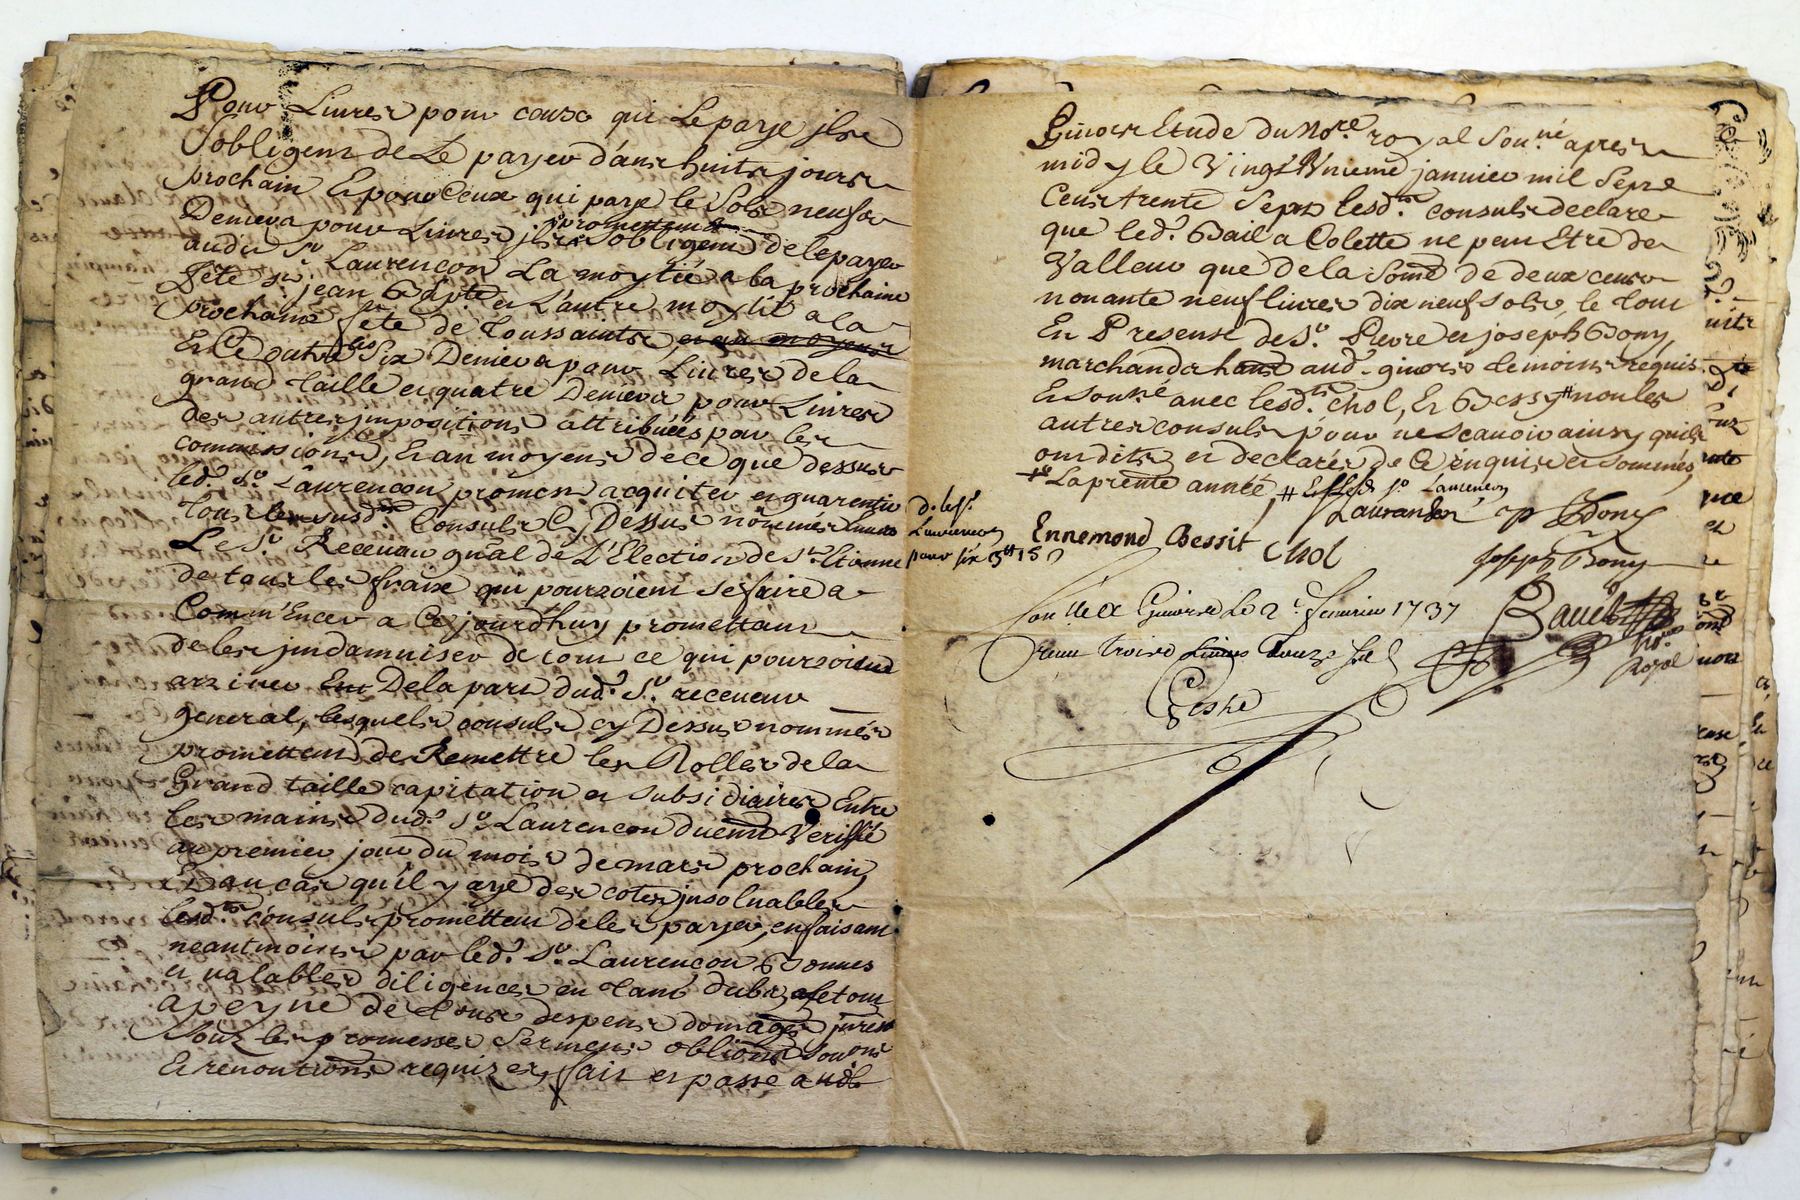 Pour Livres pour ceux qui Le paye ils se
sobligent de Le payer dans huits jours
prochain Et pour Ceux qui paye le Sols neufs
Deniers pour Livres ils promettent sobligent de le payer
audit Sr Laurencon La moytié a la prochaine
fete St jean Bapte et L'autre moytié a la
prochaine fete de toussaints, et au moyens
En Outre les Six Deniers pour Livres de la
grand taille et quatre Deniers pour Livres
des autres impositions attribuées par les
commissions, Et au moyens de ce que dessus
led. Sr Laurencon promen acquiter et guarentir
tous les susd. Consuls Cy Dessus nommes envers
Le Sr Receveur gnâl de L'Election de St Etienne
de tous les fraix qui pourroient se faire a
Comm'Encer a Ce jourdhuy promettans
de les jndamniser de tout ce qui pourroient
arriver De la part dud. Sr receveur
general, lesquels consuls cy Dessus nommés
promettent de Remettre les Rolles de la
Grand taille capitation et subsidiaires Entre
les mains dud. Sr Laurencon duemt Veriffié
au premier jour du mois de mars prochain,
Et au cas qu'il y aye des cotes jnsoluables
lesd. consuls promettent de les payer, en faisant
neantmoins par led. Sr Laurencon Bonnes
et ualables diligences en tant dubz, le tout
a peyne de tous despens domages jnrests
Soûz les promesses Sermens obliôns Souons
Et renontiôns requizes, fait et passé audt
d. les.
Laurencon
pour six
Giuors Etude du Nore royal Sousné apres
midy le Vingt Vnieme januier mil Sept
Cens trente Sept lesd. consuls declare
que led. Bail a Colette ne peut Etre de
Valleur que de la Some de deux cens
nonante neuf liures dix neuf sols, le tout
En Presense de Sr Pierre et joseph Bony,
marchands hants aud. giuors temoins requis
Et sousné avec lesd. chol, Et Bessy # non les
autres consuls pour ne Scauoir ainsy quils
ont dits et declarés de Ce enquis et sommés,
La prente année, # Et led. Sr Laurencon
Lauranson p Bony
Ennemond Bessit chol
joseph Bony
Con.lé a Giuors Le 2e feurier 1737
Receu trois Liures douze sols
Bauet
Nore
Royal